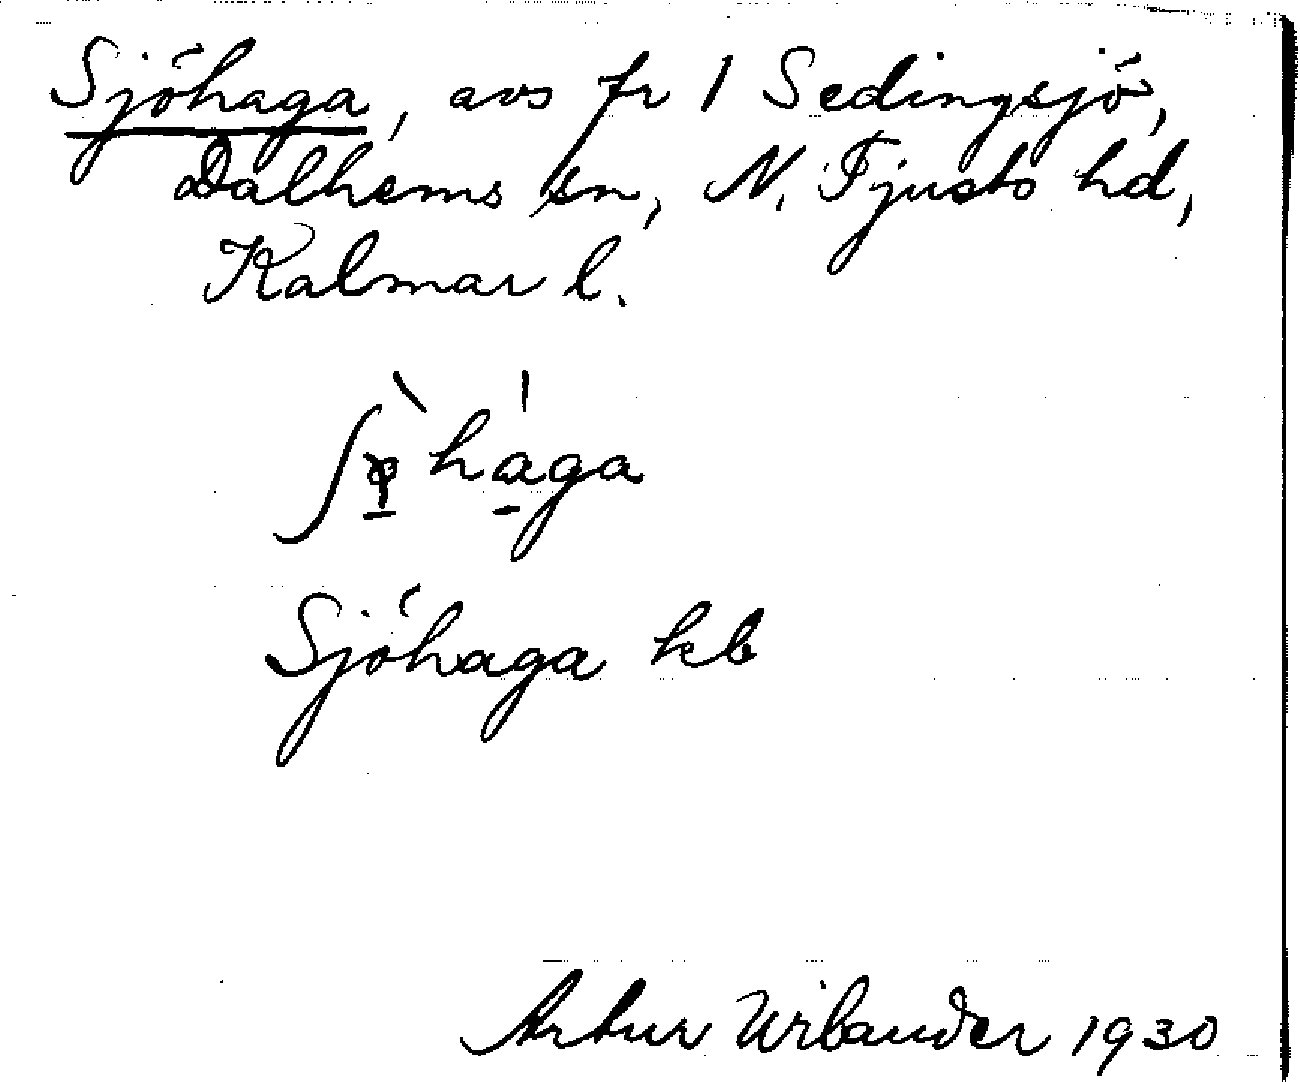 Sjöhaga, avs fr 1 Sedingsjö,
Dalhems sn, N. Tjusts hd,
Kalmar l.
haga
Sjöhaga kb
Artur Wilander 1930